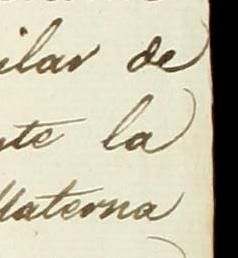 ilar de
nte la
Materna